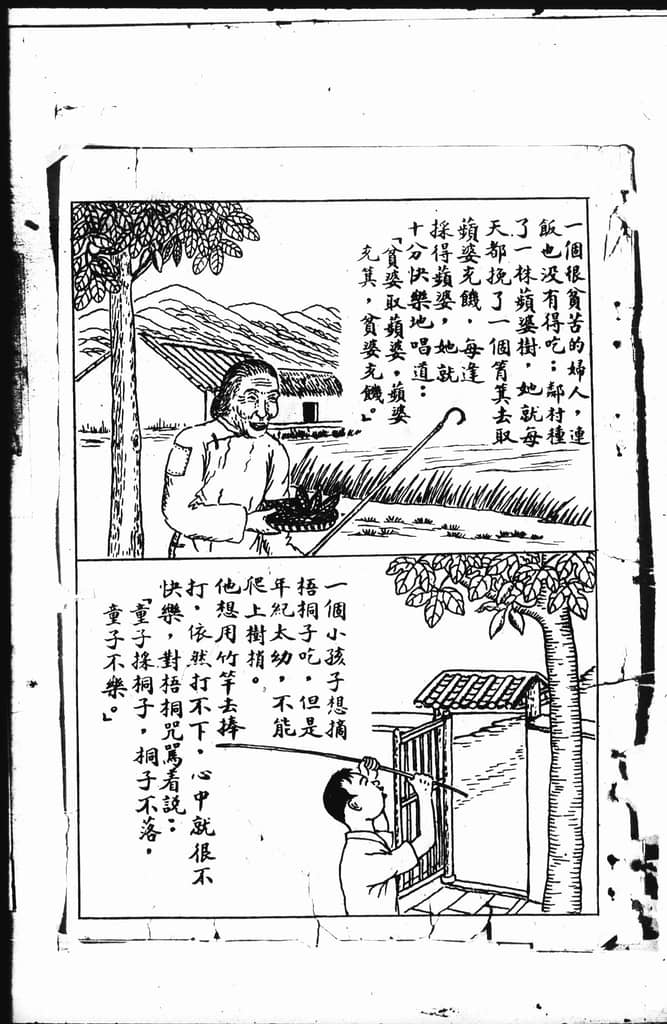 一個很貧苦的婦人，連
飯也没有得吃：鄰村種
了一株蘋婆樹，她就每
天都挽了一個筲箕去取
蘋婆充饑，每逢
採得蘋婆，她就
十分快樂地唱道：
「貧婆取蘋婆，蘋婆
充箕，貧婆充饑。」
一個小孩子想摘
梧桐子吃，但是
年紀太幼，不能
爬上樹梢。
他想用竹竿去捧
打，依然打不下，心中就很不
快樂，對梧桐咒駡着説：
「童子採桐子，桐子不落，
童子不樂。」